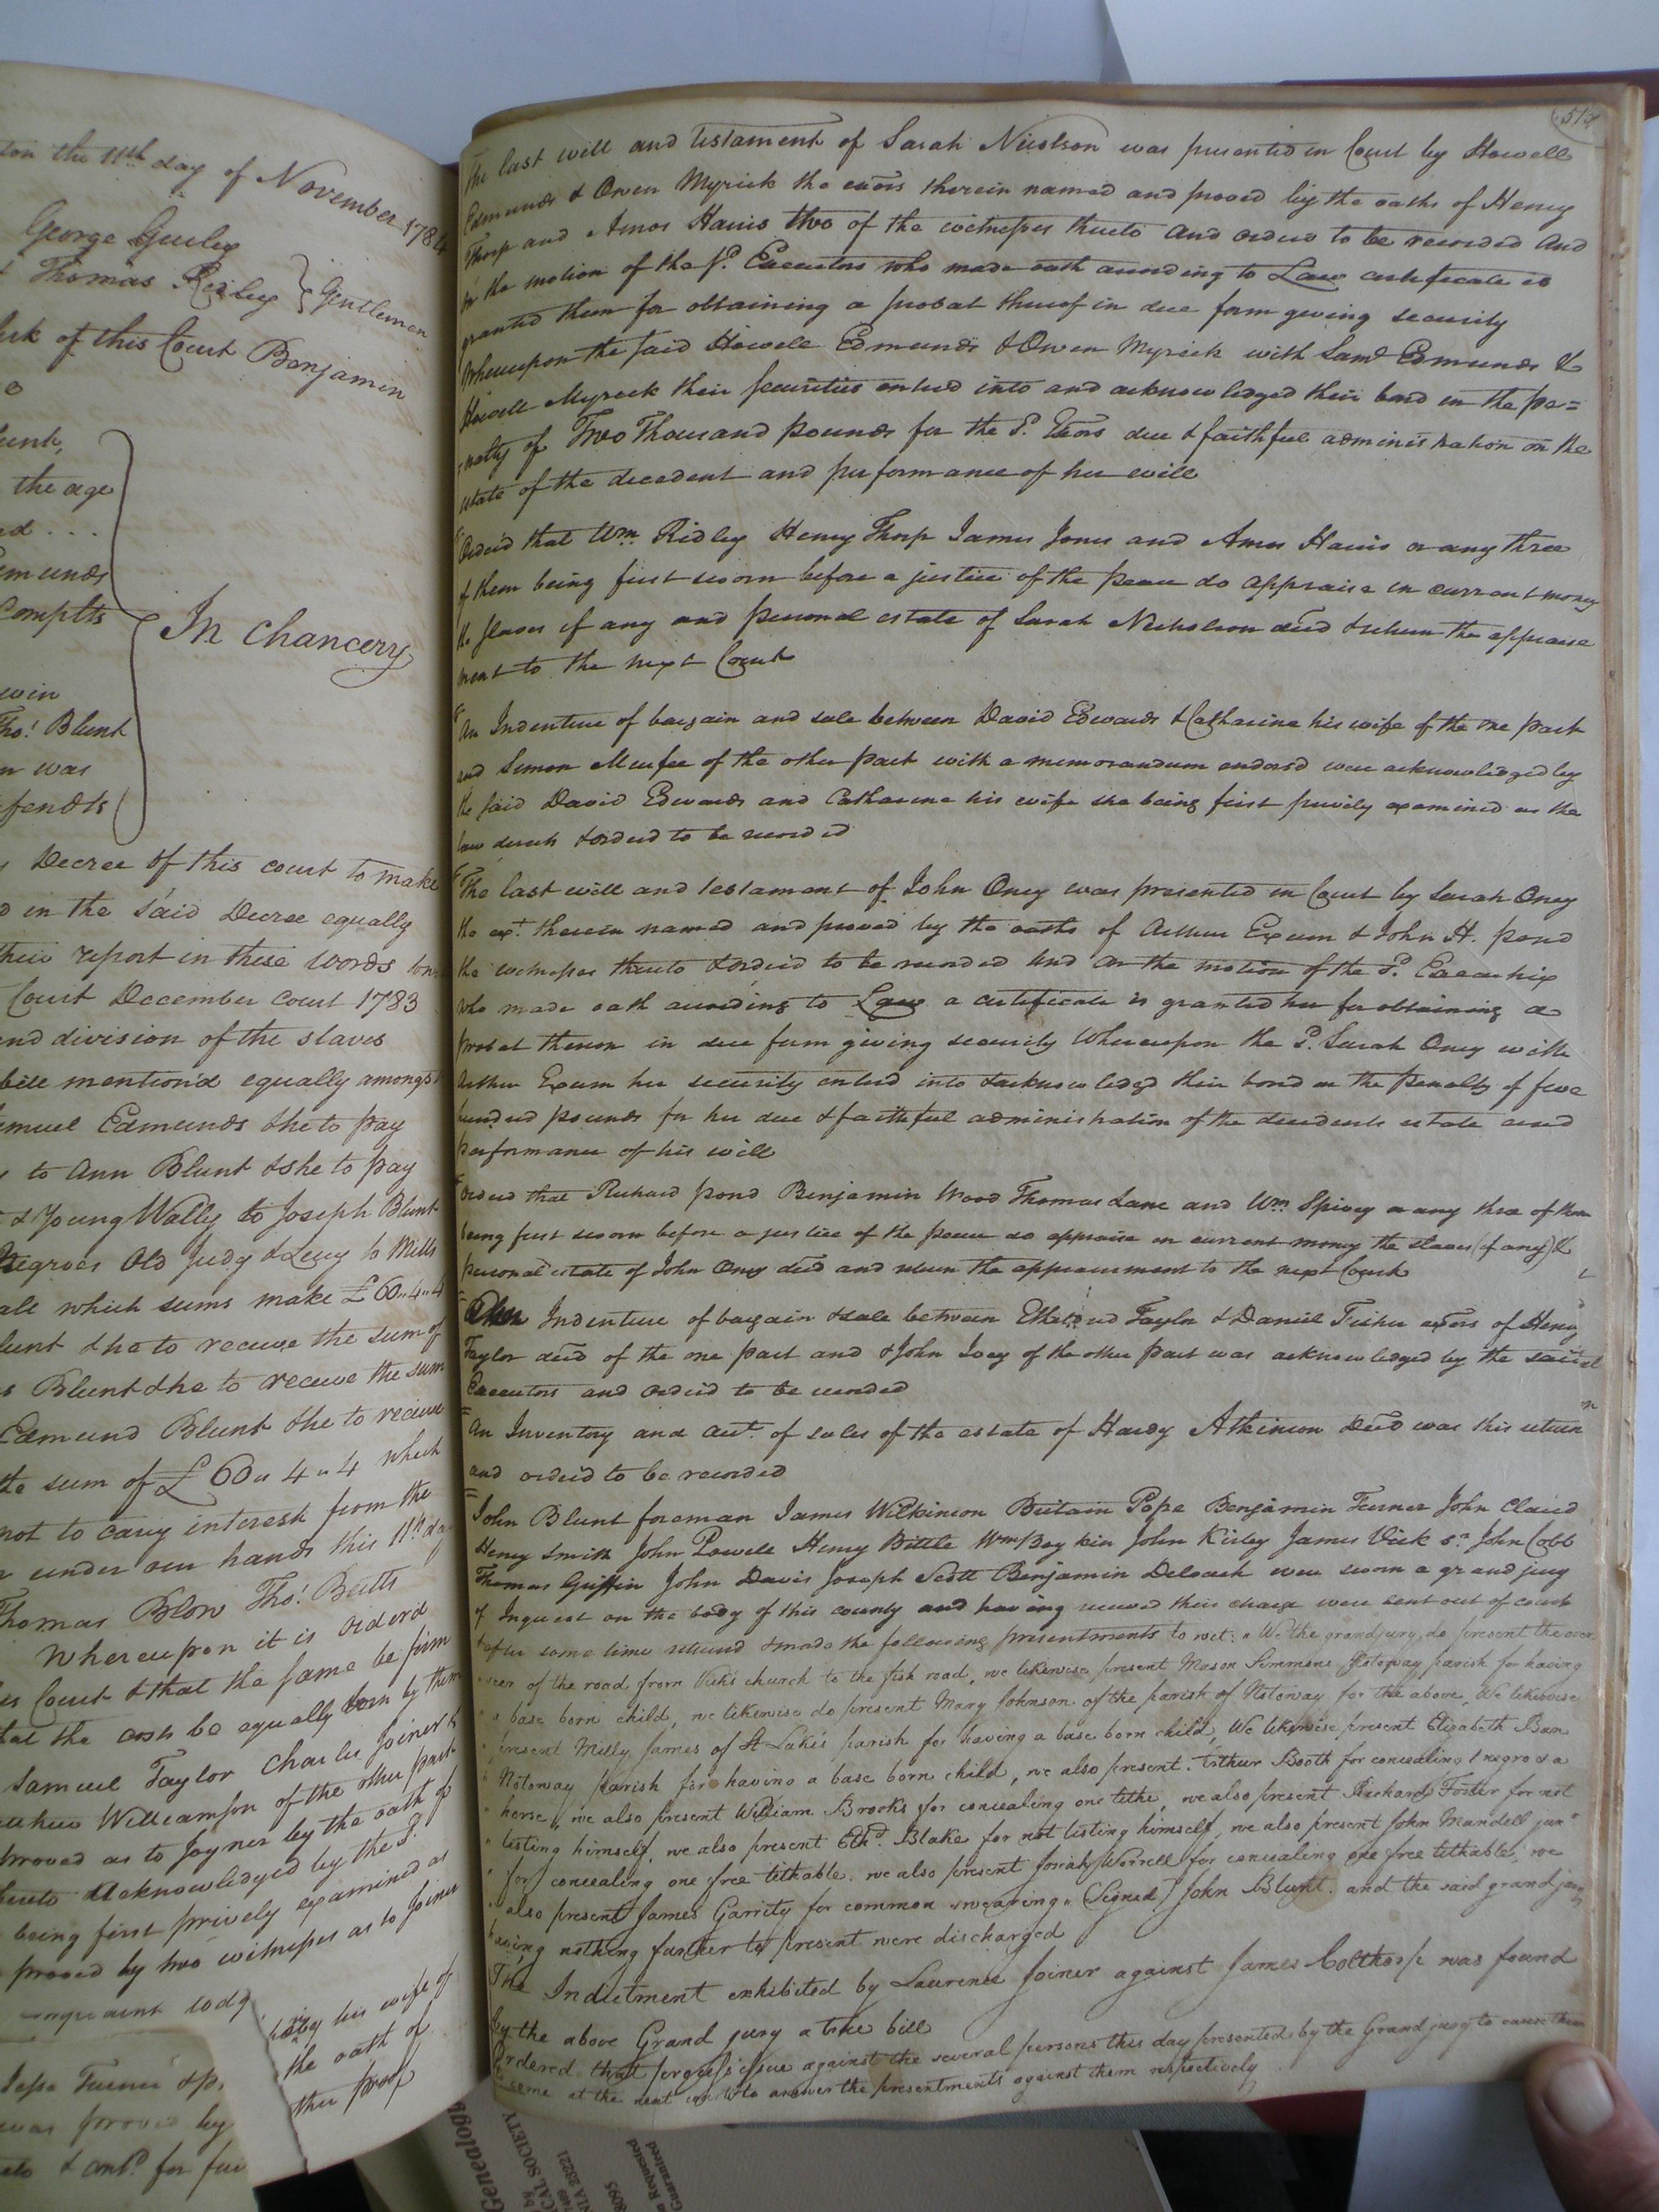 on the 11th day of November 1784
George Gurley
Thomas Ridley } Gentlemen
of this Court Benjamin
the age
Complts
In Chancery
Tho! Blunt
was
Decree of this court to make
in the said Decree equally
their report in these words
Court December Court 1783
and division of the slaves
bill mention'd equally amongst
Edmunds & he to pay
to Ann Blunt & she to pay
& Young Wally to Joseph Blunt
Negroes Old Judy & Lucy to Mills
all which sums make £60..4..4
& he to receive the sum of
Blunt & he to receive the sum
Edmund Blunt & he to receive
the sum of £60..4..4 which
not to carry interest from the
under our hands this 11th day
Thomas Blow Tho! Butts
Whereupon it is Orderd
Court & that the same be firm
the costs be equally born by them
Samuel Taylor Charles Joiner &
Williamson of the other part
proved as to Joyner by the oath of
Acknowledged by the sd.
being first privily examined as
proved by two witnesses as to Joiner
his wife of
the oath of
ther proof
Jesse Turner
was proved by
514
The last will and testament of Sarah Nicolson was presented in Court by Howell
Edmunds & Owen Myrick the exōrs therein named and proved by the oaths of Henry
Thorp and Amos Harris two of the witnesses thereto and orderd to be recorded And
on the motion of the sd. Executors who made oath according to Law certificate is
granted them for obtaining a probat thereof in due form giving security
Whereupon the said Howell Edmunds & Owen Myrick with Saml Edmunds &
Howell Myrick their securities enterd into and acknowledged their bond in the pe=
nalty of Two Thousand pounds for the sd. Exōrs due & faithful administration on the
estate of the decedent and performance of her will
Orderd that Wm. Ridley Henry Thorp James Jones and Amos Harris or any three
of them being first sworn before a justice of the peace do appraise in current money
the slaves if any and personal estate of Sarah Nicholson decd & return the appraise
ment to the next Court
An Indenture of bargain and sale between David Edwards & Catharine his wife of the one part
and Simon Murfee of the other part with a memorandum endorsd were acknowledged by
the said David Edwards and Catharine his wife she being first privily examined as the
law directs & orderd to be recorded
The last will and testament of John Oney was presented in Court by Sarah Oney
the ext. therein named and proved by the oaths of Arthur Exum & John H. Pond
the witnesses thereto & orderd to be recorded And on the motion of the sd. Executrix
who made oath according to Law a certificate is granted her for obtaining a
probat thereon in due form giving security Whereupon the sd. Sarah Oney with
Arthur Exum her security enterd into & acknowledged their bond in the Penalty of five
hundred pounds for her due & faithful administration of the decedents estate and
performance of his will
Orderd that Richard Pond Benjamin Wood Thomas Lane and Wm. Spivey or any three of them
being first sworn before a justice of the peace do appraise in current money the slaves (if any) &
personal estate of John Oney decd and return the appraisement to the next Court
Indenture of bargain & sale between Etheldred Taylor & Daniel Fisher exōrs of Henry
Taylor decd of the one part and & John Ivey of the other part was acknowledged by the said
Executors and orderd to be recorded
An Inventory and acct. of sales of the estate of Hardy Atkinson Decd was this return
and orderd to be recorded
John Blunt foreman James Wilkinson Britain Pope Benjamin Turner John Claud
Henry Smith John Powell Henry Bittle Wm. Boykin John Kirley James Vick Sr. John Cobb
Thomas Griffin John Davis Joseph Scott Benjamin Deloach were sworn a grand jury
of Inquest on the body of this county and having received their charge were sent out of court
& after some time returnd & made the following presentments to wit. "We the grand jury do present the over
"seer of the road from Vick's church to the fish road, we likewise present Mason Simmons Notoway parish for having
"a base born child, we likewise do present Mary Johnson of the parish of Notoway for the above, We likewise
"present Milly James of St Luke's parish for having a base born child, We likewise present Elizabeth Ban
"Notoway parish for having a base born child, we also present Arthur Booth for concealing 1 negro & a
"horse, we also present William Brocks for concealing one tithe, we also present Richard Foster for not
"listing himself, we also present Ethd. Blake for not listing himself, we also present John Mandell junr
"for concealing one free tithable. we also present Josiah Worrell for concealing one free tithable, we
"also present James Garrity for common swearing" (Signed) John Blunt. and the said grand jury
having nothing further to present were discharged
The Indictment exhibited by Laurence Joiner against James Colthorp was found
by the above Grand jury a true bill
Ordered that process issue against the several persons this day presented by the Grand jury to cause them
to come at the next court to answer the presentments against them respectively
Genealog
CAL SOCIETY
NIA 23221
8095
Requested
Guaranteed